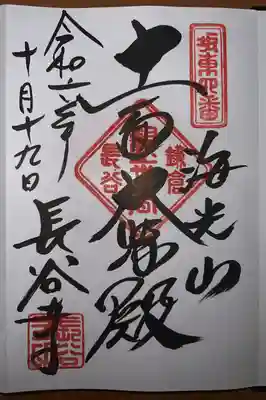 坂東四番
海光山
十一面大悲殿
鎌倉
長谷
令和六年
十月十九日
長谷寺